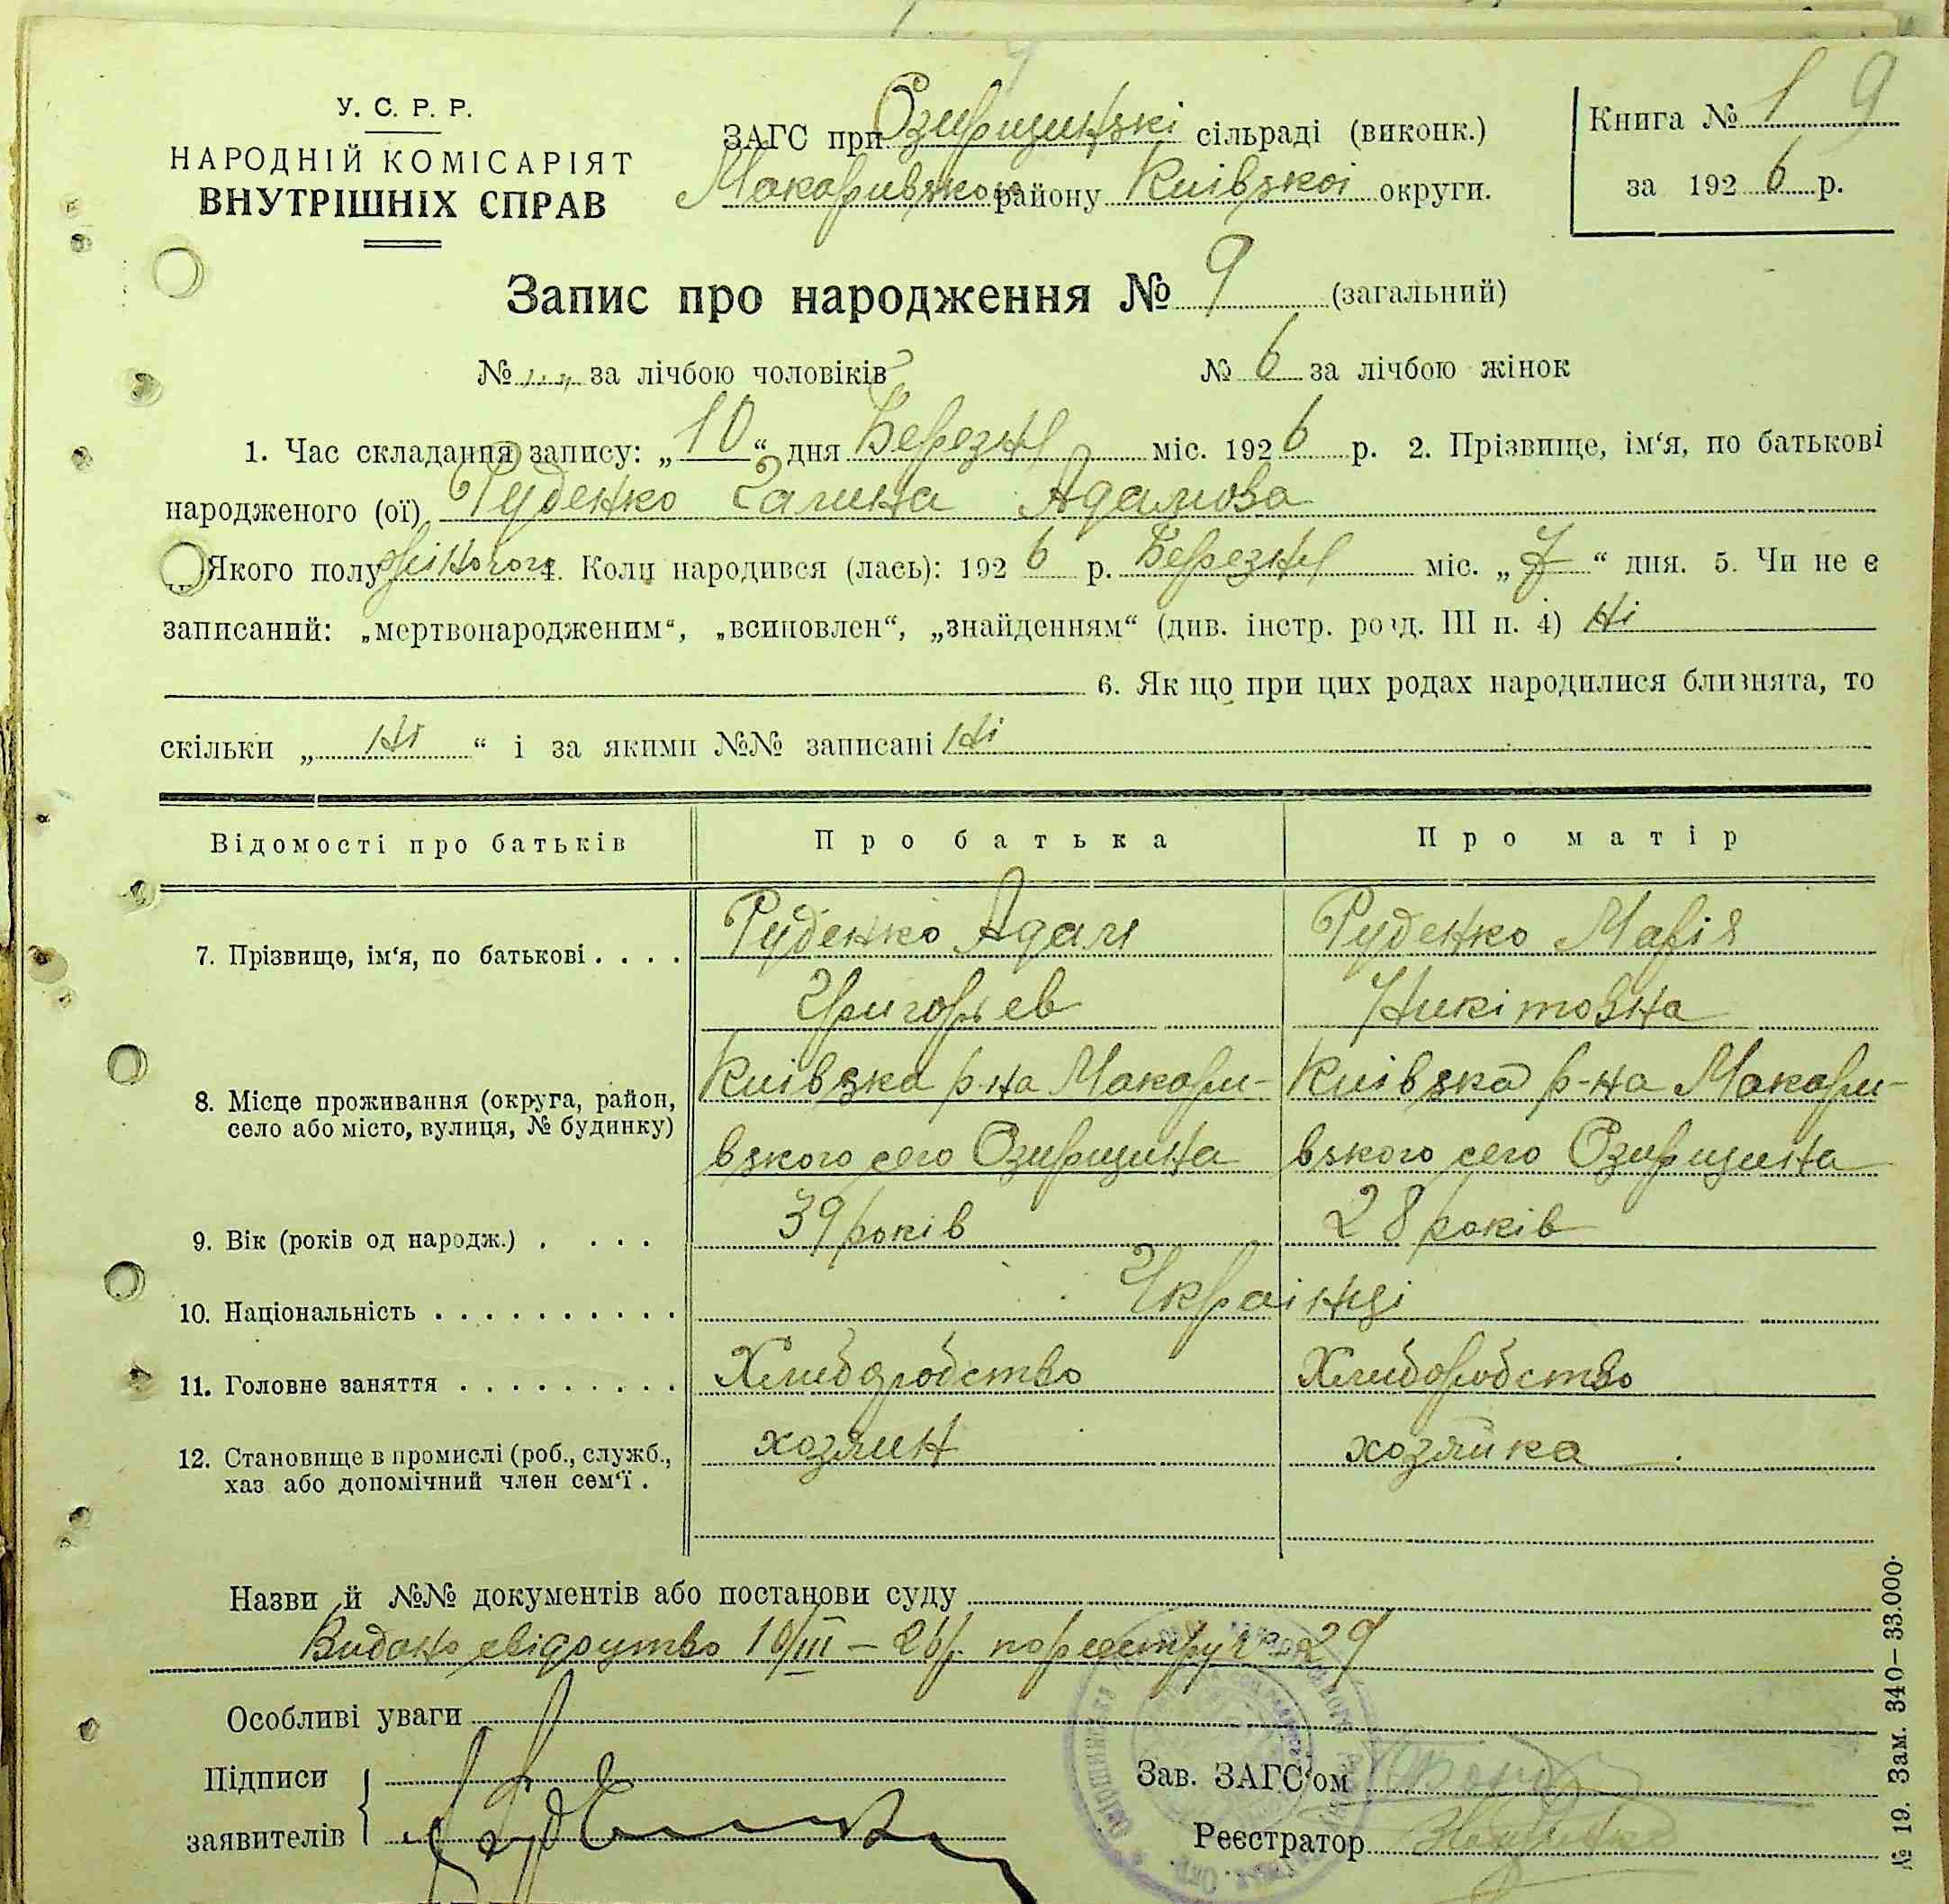 У. С. Р. Р.
НАРОДНІЙ КОМІСАРІЯТ
ВНУТРІШНІХ СПРАВ
ЗАГС при Озирщинзкі сільраді (виконк.)
Макаривзкого району Киівзкоі округи.
Книга № 1 9
за 1926 р.
Запис про народження № 9 (загальний)
№ за лічбою чоловіків № 6 за лічбою жінок
1. Час складання запису: „10“ дня Березня міс. 1926 р. 2. Прізвище, ім‘я, по батькові
народженого (ої) Руденко Галина Адамова
Якого полу жіногог 4. Коли народився (лась): 1926 р. Березня міс. „7“ дня. 5. Чи не є
записаний: „мертвонародженим“, „всиновлен“, „знайденням“ (див. інстр. розд. III п. 4) Ні
6. Як що при цих родах народилися близнята, то
скільки „ Ні “ і за якими №№ записані Ні
Відомості про батьків Про батька Про матір
7. Прізвище, ім‘я, по батькові . . . . Руденко Адам Руденко Марія
Григорьев Никітовна
8. Місце проживання (округа, район, Киівзка р-на Макари- Киівзка р-на Макари-
село або місто, вулиця, № будинку) взкого село Озирщина взкого село Озирщина
9. Вік (років од народж.) . . . . 39 років 28 років
10. Національність . . . . . . . . . . Украінці
11. Головне заняття . . . . . . . . . Хлибородство Хлибородство
12. Становище в промислі (роб., служб., хозяин хозяйка
хаз або допомічний член сем‘ї .
Назви й №№ документів або постанови суду
Видано свідоцтво 10/III – 26р. по реєстру № 29
Особливі уваги
Підписи
заявителів
Зав. ЗАГС‘ом
Реєстратор
№ 19. Зам. 340–33.000.